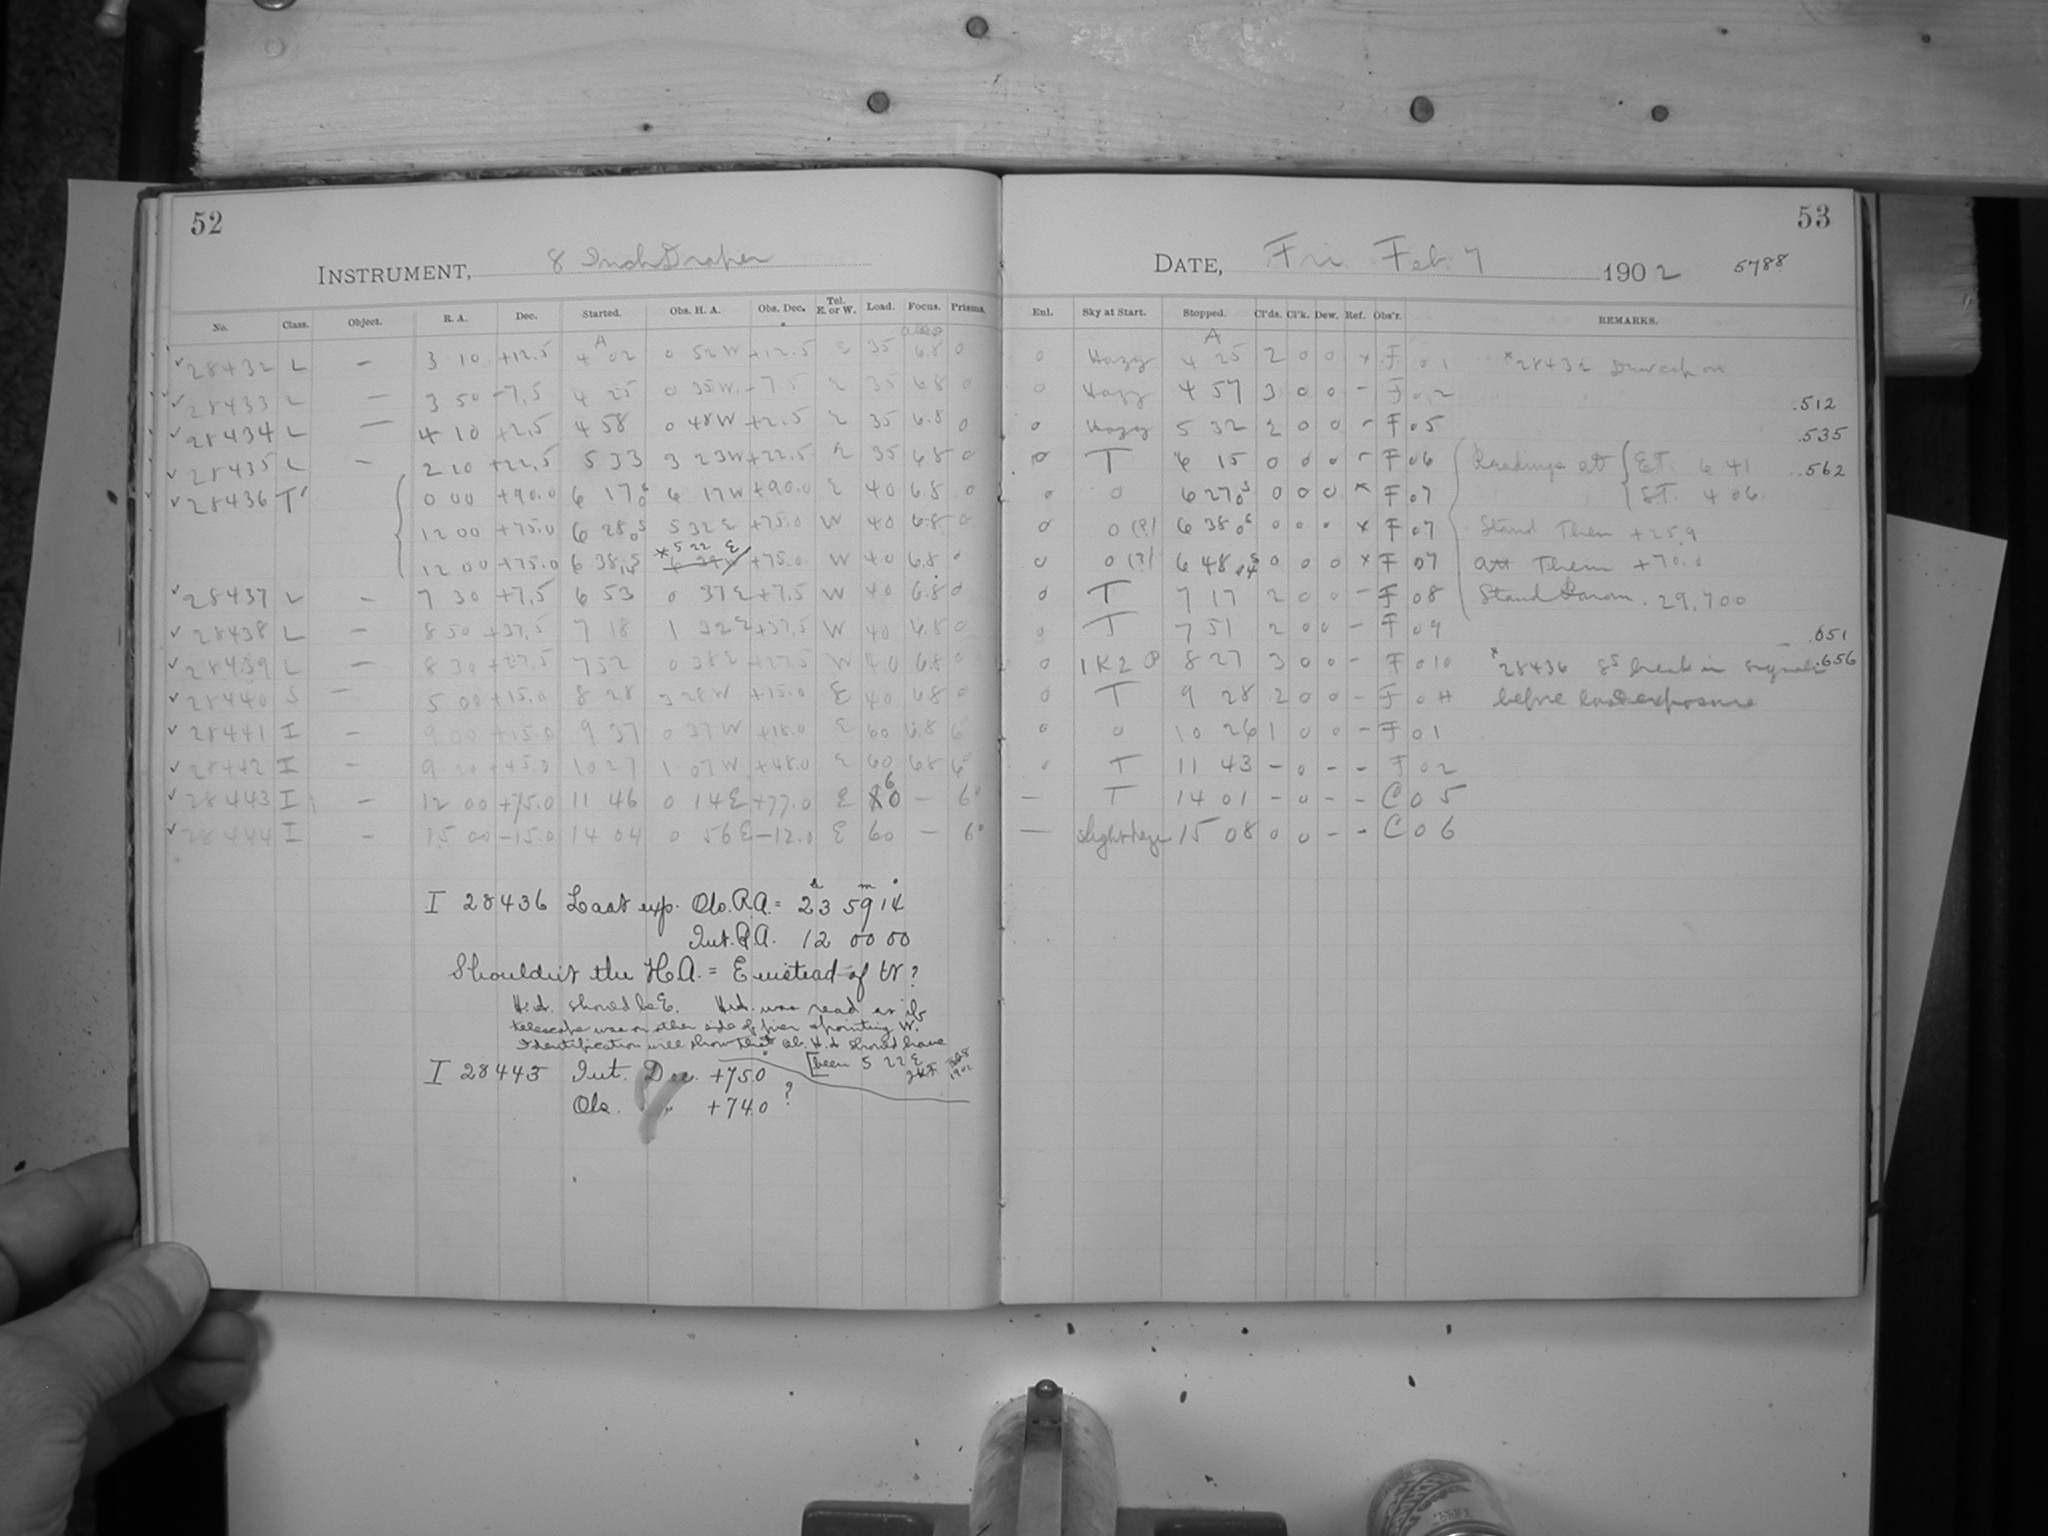 52
INSTRUMENT, 8 Inch Draper
No. Class. Object. R. A. Dec. Started. Obs. H. A. Obs. Dec. Tel. E. or W. Load. Focus. Prisms.
A
28432 L — 3 10 +12.5 4 02 0 52 W +12.5 E 35 6.8 0
28433 L — 3 50 -7.5 4 25 0 35 W. -7.5 E 35 6.8 0
28434 L — 4 10 +2.5 4 58 0 48 W +2.5 E 35 6.8 0
28435 L — 2 10 +22.5 5 33 3 23 W +22.5 E 35 6.8 0
28436 T' 0 00 +90.0 6 17 0s 6 17 W +90.0 E 40 6.8 0
12 00 +75.0 6 28 0s 5 32 E +75.0 W 40 6.8 0
12 00 +75.0 6 38 * 5 22 E +75.0 W 40 6.8 0
28437 L — 7 30 +7.5 6 53 0 37 E +7.5 W 40 6.8 0
28438 L — 8 50 +37.5 7 18 1 32 E +37.5 W 40 6.8 0
28439 L — 8 30 +27.5 7 52 0 38 E +27.5 W 40 6.8 0
28440 S — 5 00 +15.0 8 28 3 28 W +15.0 E 40 6.8 0
28441 I — 9 00 +15.0 9 37 0 37 W +18.0 E 60 6.8 6°
28442 I — 9 20 +45.0 10 27 1 07 W +48.0 E 60 6.8 6°
28443 I — 12 00 +75.0 11 46 0 14 E +77.0 E 60 — 6°
28444 I — 15 00 -15.0 14 04 0 56 E -12.0 E 60 — 6°
I 28436 Last exp. Obs. R.A. = 23h 59m 14s
Int. R.A. 12 00 00
Shouldn't the H.A. = E instead of W?
H.A. should be E. H.A. was read as if
telescope was on other side of pier & pointing W.
Identification will show that Ob. H.A. should have
[been 5 22 E
1902
I 28443 Int. Dec. +75.0
Obs. " +74.0 ?
53
DATE, Fri. Feb. 7 1902 5788
Enl. Sky at Start. Stopped. Cl'ds. Cl'k. Dew. Ref. Obs'r. REMARKS.
A
0 Hazy 4 25 2 0 0 × F 01 ×28432
0 Hazy 4 57 3 0 0 – F 02
.512
0 Hazy 5 32 2 0 0 – F 05
.535
0 T 6 15 0 0 0 – F 06 Readings at { E.T. 6 41 .562
0 0 6 27 0s 0 0 0 × F 07 { S.T. 4 06
0 0 (?) 6 38 0s 0 0 0 × F 07 Stand Them +25.9
0 0 (?) 6 48 0 0 0 × F 07 att Them +70.0
0 T 7 17 2 0 0 – F 08 Stand Barom. 29.700
0 T 7 51 2 0 0 – F 09
.651
0 1K2 P 8 27 3 0 0 – F 010 ×28436 8s break in signals .656
0 T 9 28 2 0 0 – F 011 before last exposure
0 0 10 26 1 0 0 – F 01
0 T 11 43 – 0 – – F 02
— T 14 01 – 0 – – C 05
— slight haze 15 08 0 0 – – C 06